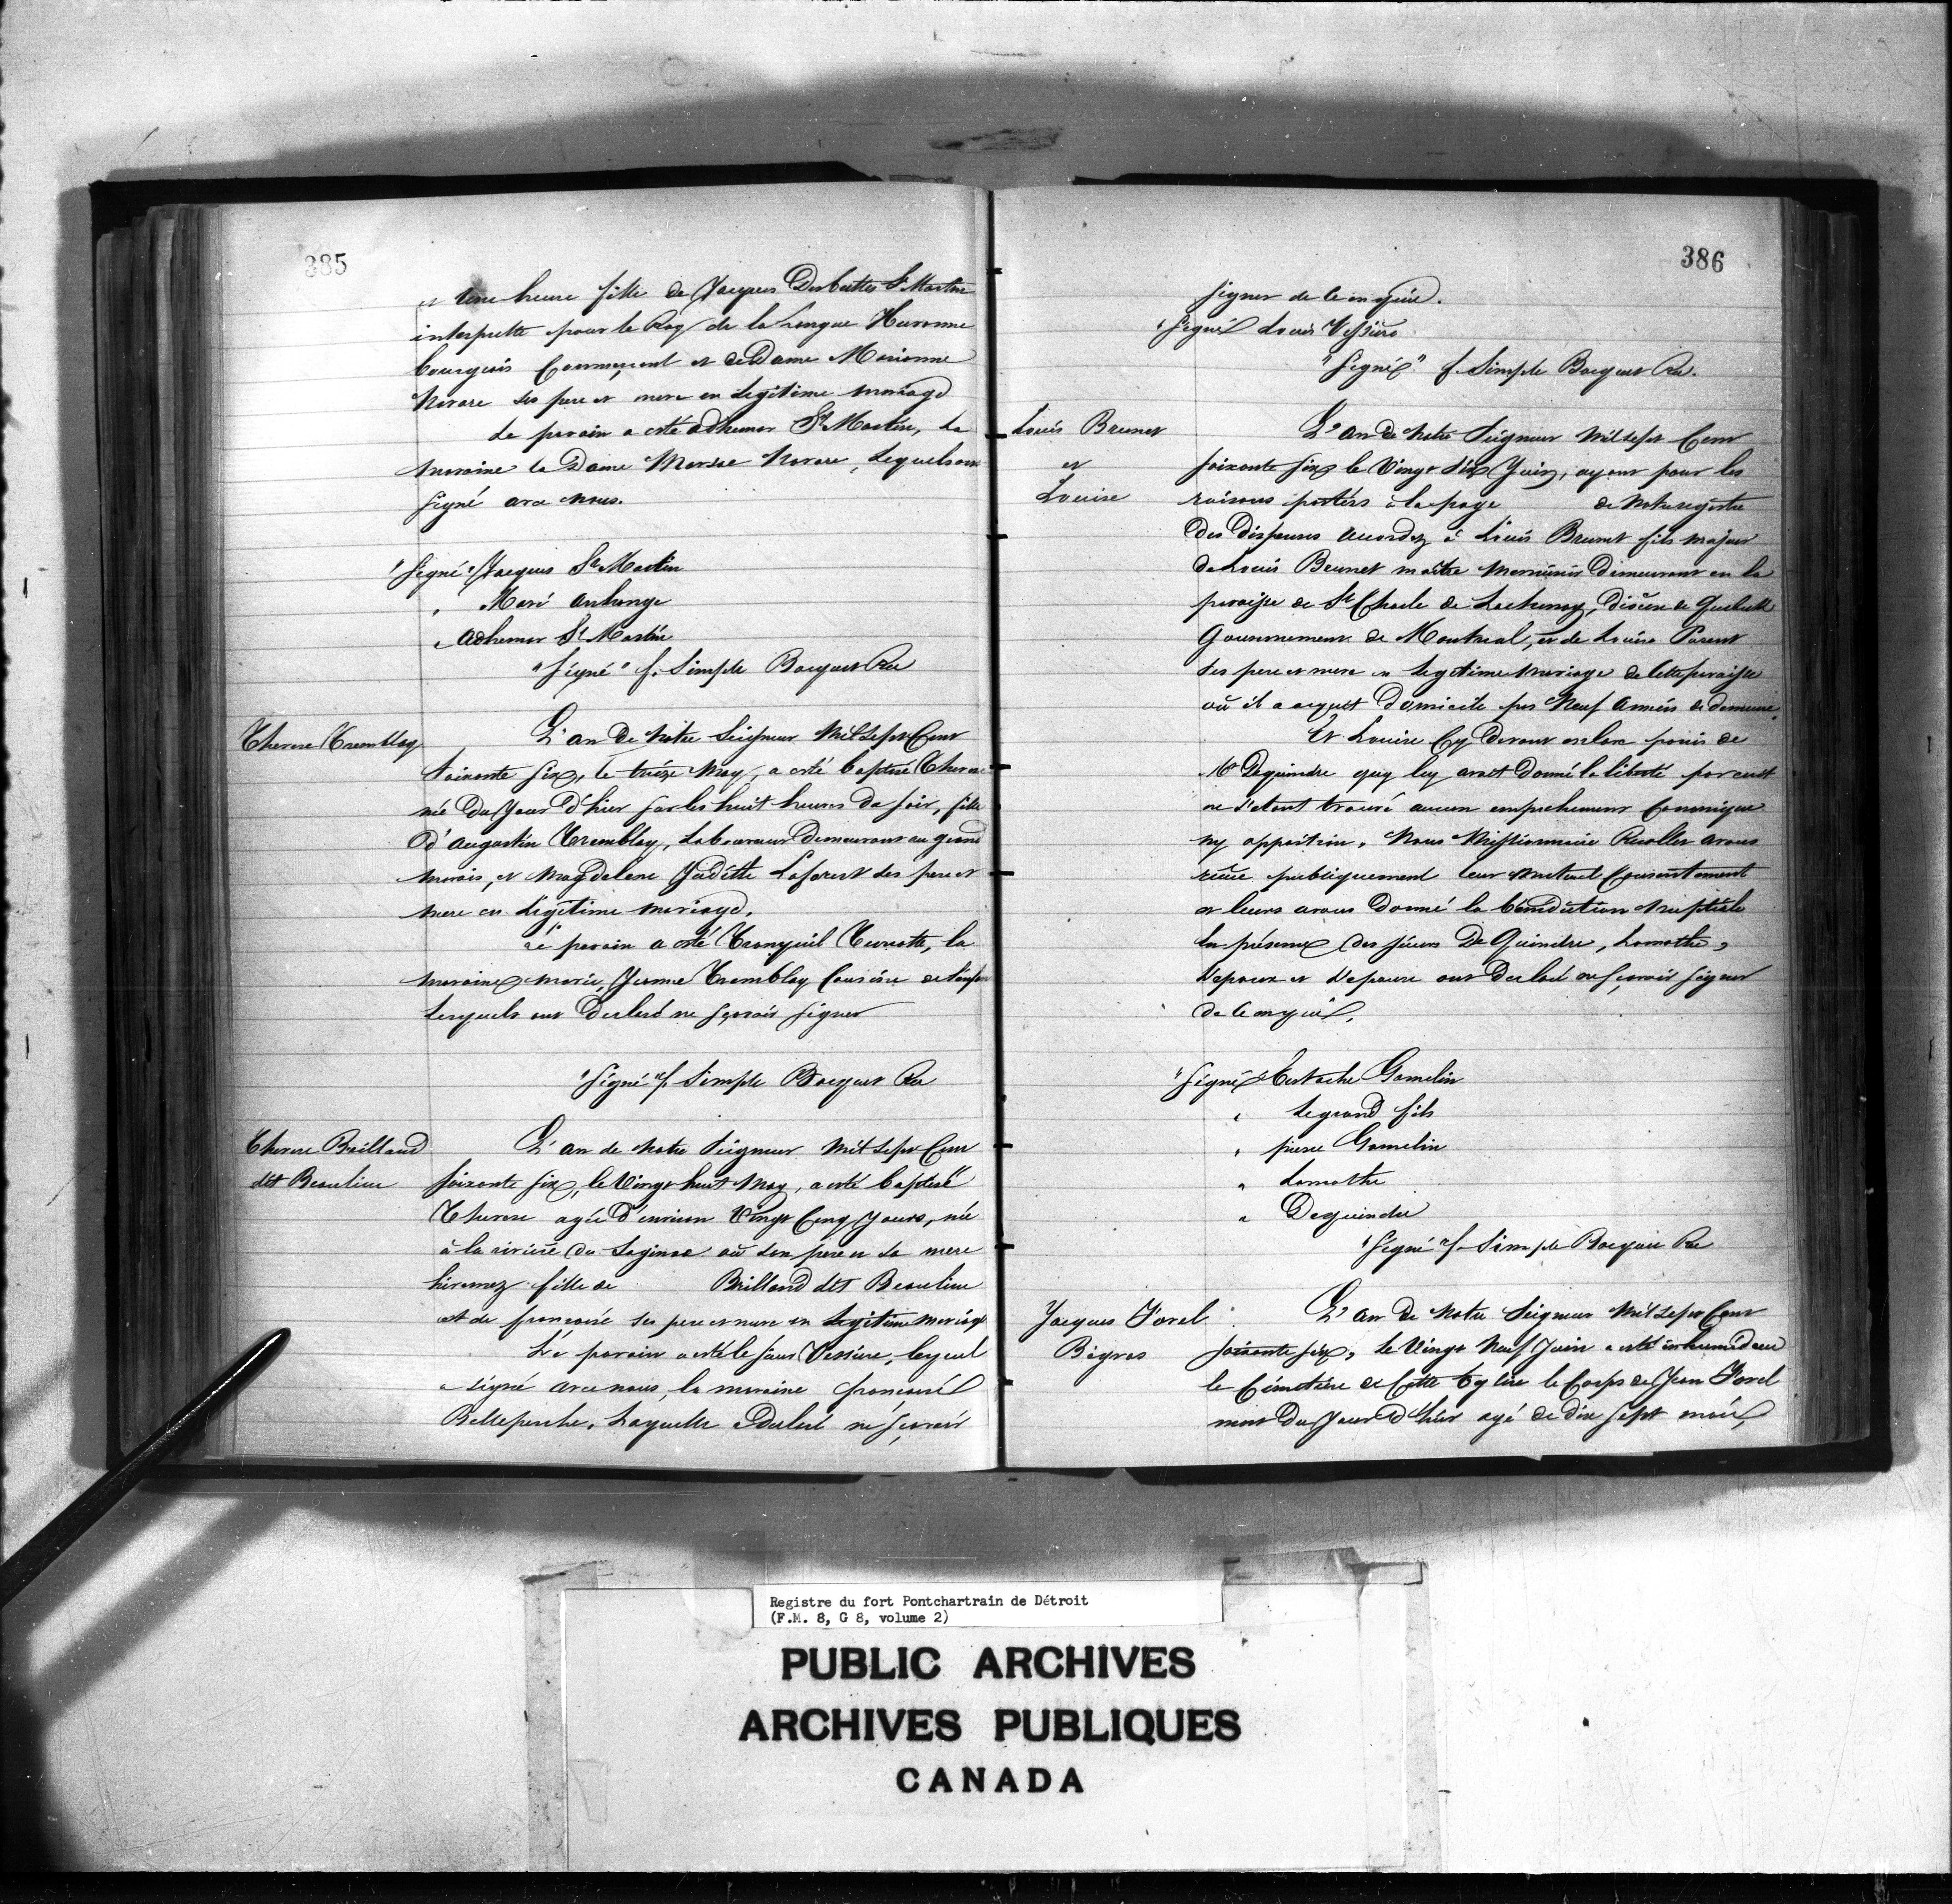 385
et une heure fille de Jacques Desbuttes St Martin
interprette pour le Roy de la Langue Huronne
bourgeois Commerçant et de Dame Marianne
Navare ses pere et mere en Legitime mariage
Le parain a esté adhemar St Martin, La
maraine la Dame Navare, Lesquels ont
signé avec nous.
"Signé" Jacques St Martin
" Navare
" adhemar St Martin
"Signé" f. Simple Bocquet Rec
Therese Tremblay
L'an de Notre Seigneur Mil Sept Cent
Soixante Six, le treize May, a esté baptisé Therese
née du Jour d'hier sur les huit heures du soir, fille
d'augustin Tremblay, Laboureur Demeurant au grand
marais, et Magdelene Judette Laforest ses pere et
mere en Legitime mariage.
Le parain a esté Turcotte, la
maraine marie Jeanne Tremblay Cousine de l'enfant
Lesquels ont Declaré ne sçavoir signer
"Signé" f. Simple Bocquet Rec
Therese Brilland
dit Beaulieu
L'an de Notre Seigneur Mil Sept Cent
Soixante Six, le Vingt huit May, a esté baptisé
Therese agée d'environ Vingt Cinq Jours, née
à la riviere du Saginac où son pere et sa mere
hivernez fille de Brilland dit Beaulieu
et de françoise ses pere et mere en Legitime mariage
Le parain a esté le sieur Vessiere, lequel
a signé avec nous, la maraine françoise
Belleperche, Laquelle a Declaré ne sçavoir
386
signer de ce enquise.
"Signé Louis Vessiere
"Signé" f. Simple Bocquet Rec.
Louis Brunet
et
Louise
L'An de Notre Seigneur Mil Sept Cent
Soixante Six le Vingt Six Juin, ayant pour les
raisons portées à la page de Notre registre
Des Dispenses accordez à Louis Brunet fils majeur
de Louis Brunet maitre Menuisier Demeurant en la
paroisse de St Charle de Lachenay, Diocese de Quebeck
Gouvernement de Montreal, et de Louise Parent
ses pere et mere en Legitime mariage de cette paroisse
où il a acquit Domicile par Neuf Années de demeure
Et Louise Cy devant esclave panis de
Mr Dequindre quy luy avoit Donné la liberté par ecrit
ne s'etant trouvé aucun empechement Canonique
ny oppoition, Nous Missionnaire Recollet avons
reçue publiquement leur Mutuel Consentement
et leurs avons Donné la bénédiction Nuptiale
En présence des sieurs De Quindre, Lamothe,
L'epoux et L'epouse ont Declaré ne sçavoir signer
de ce enquis.
"Signé Eustache Gamelin
" Legrand fils
" pierre Gamelin
" Lamothe
" Dequindre
"Signé" f. Simple Bocquet Rec
Jacques Forel
Bigras
L'an de Notre Seigneur Mil Sept Cent
Soixante Six, le Vingt Neuf Juin a esté inhumé dans
le Cémetiere de Cette Eglise le Corps de Jean Forel
mort du Jour d'hier agé de dix sept mois,
Registre du fort Pontchartrain de Détroit
(F.M. 8, G 8, volume 2)
PUBLIC ARCHIVES
ARCHIVES PUBLIQUES
CANADA